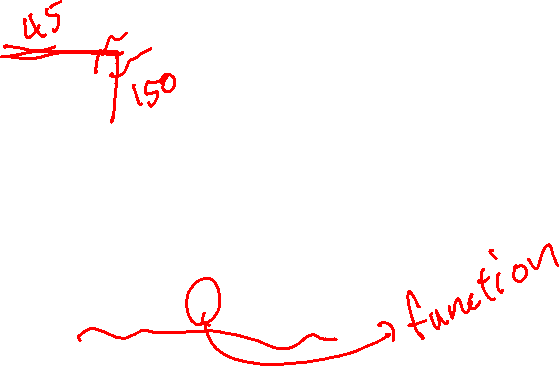 45
150
function